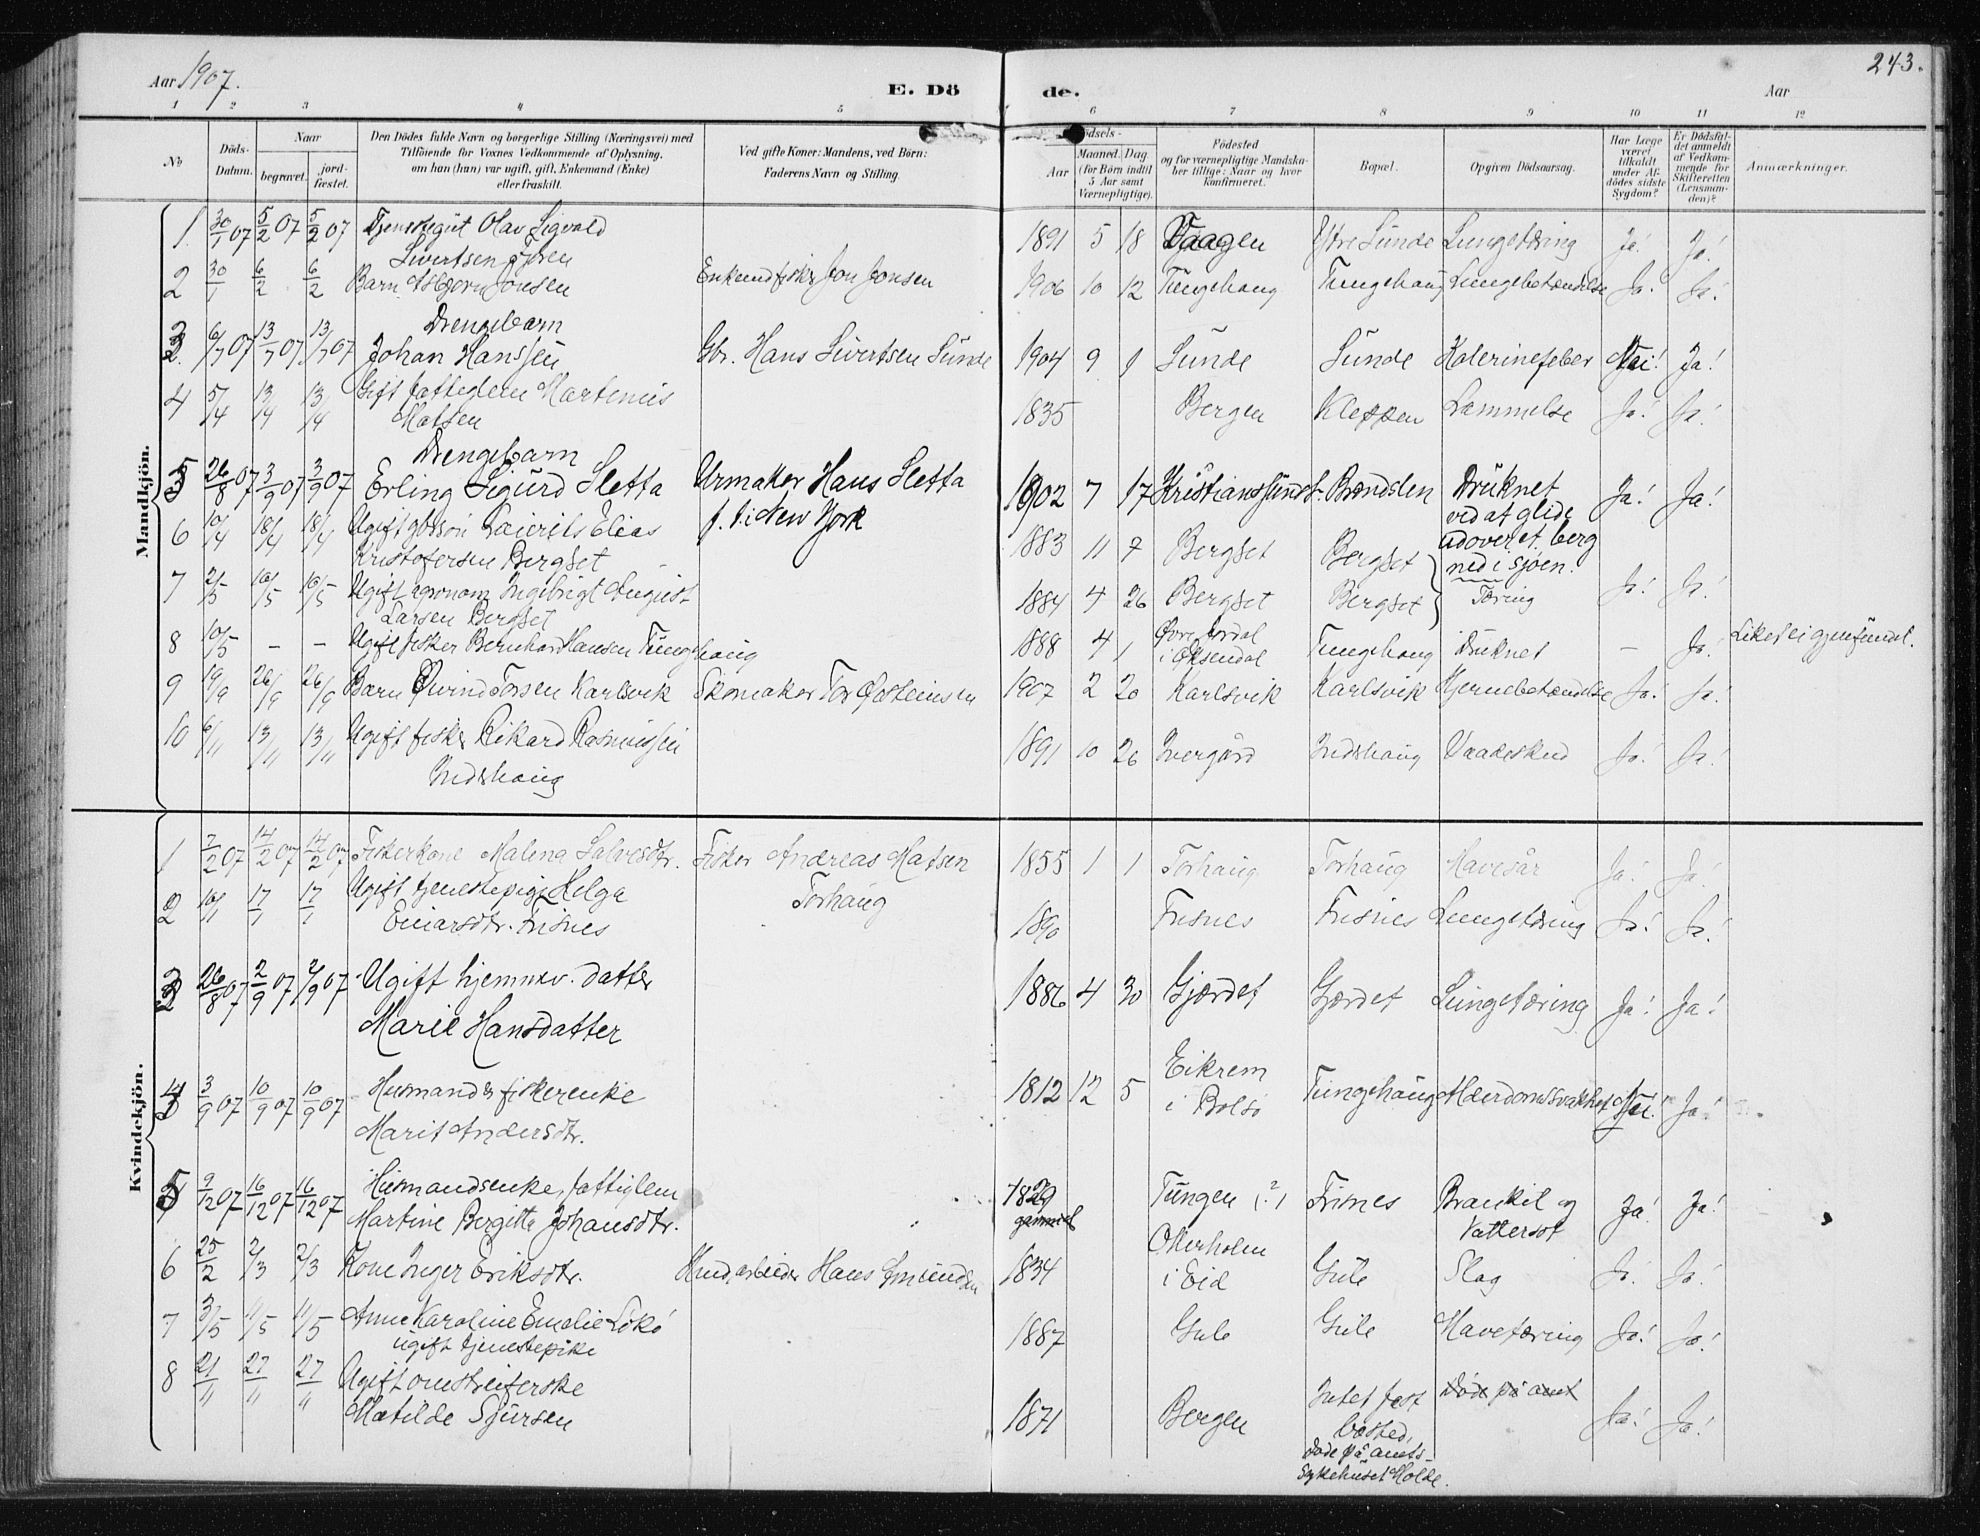 Aar 1907.
E. Døde.
Aar
243.
1 2 3 4 5 6 7 8 9 10 11 12
No
Döds-Datum.
Naar
begravet. jord-fæstet.
Den Dödes fulde Navn og borgerlige Stilling (Næringsvei) med Tilföiende for Voxnes Vedkommende af Oplysning, om han (hun) var ugift, gift, Enkemand (Enke) eller fraskilt.
Ved gifte Koner: Mandens, ved Börn: Faderens Navn og Stilling.
Födsels-
Aar Maaned. Dag
(for Börn indtil 5 Aar samt Værnepligtige).
Födested og for værnepligtige Mandskaber tillige: Naar og hvor konfirmeret.
Bopæl.
Opgiven Dödsaarsag.
Har Læge været tilkaldt under Afdödes sidste Sygdom?
Er Dödsfaldet anmeldt af Vedkommende for Skifteretten (Lensmanden)?
Anmærkninger.
Mandkjön.
1 30/1 07 5/2 07 5/2 07 Tjenstegut Olav Sigvald Sivertsen 1891 5 18 Vaagen Ytre Sunde Lungetæring Ja! Ja!
2 30/1 6/2 6/2 Barn Asbjørn Jonsen Enkemd fisker Jon Jonsen 1906 10 12 Tungehaug Tungehaug Lungebetændelse Ja! Ja!
3 6/7 07 13/7 07 13/7 07 Drengebarn Johan Hanssen Gbr. Hans Sivertsen Sunde 1904 9 1 Sunde Sunde Kolerinefeber Nei! Ja!
4 5/4 13/4 13/4 Gift fattiglem Martinus Matsen 1835 Bergen Kleppen Lammelse Ja! Ja!
5 26/8 07 3/9 07 3/9 07 Drengebarn Erling Sigurd Sletta Urmaker Hans Sletta f. t. i New York 1902 7 17 Kristianssund Brændslen Druknet ved at glide udover et berg ned i sjøen. Ja! Ja!
6 10/4 18/4 18/4 Ugift gbrsøn Laurits Elias Kristofersen Bergset 1883 11 7 Bergset Bergset
7 2/5 10/5 10/5 Ugift agronom Ingebrigt August Larsen Bergset 1884 4 26 Bergset Bergset Tæring Ja! Ja!
8 10/5 - - Ugift fisker Bernhard Hansen Tungehaug 1888 4 1 Øvre Jordal i Øksendal Tungehaug Druknet - Ja! Liket ei gjenfundet.
9 19/9 26/9 26/9 Barn Øivind Torsen Karlsvik Skomaker Tor Østeinsen 1907 2 20 Karlsvik Karlsvik Hjernebetændelse Ja! Ja!
10 6/11 13/11 13/11 Ugift fisker Rikard Rasmussen Indshaug 1891 10 26 Ivergård Indshaug Vaadeskud Ja! Ja!
Kvindekjön.
1 7/2 07 14/2 07 14/2 07 Fiskerkone Malena Salvesdtr. Fisker Andreas Matsen Torhaug 1855 1 1 Torhaug Torhaug Mavesår Ja! Ja!
2 10/1 17/1 17/1 Ugift tjenestepige Helga Einarsdtr. Frisnes 1890 Frisnes Frisnes Lungetæring Ja! Ja!
3 26/8 07 2/9 07 2/9 07 Ugift hjemmev. datter Marie Hansdatter 1886 4 30 Gjærdet Gjærdet Lungetæring Ja! Ja!
4 3/9 07 10/9 07 10/9 07 Husmands fiskerenke Marit Andersdtr. 1812 12 5 Eikrem i Bolsø Tungehaug Alderdomssvakhet Nei! Ja!
5 9/12 07 16/12 07 16/12 07 Husmandsenke, fattiglem Martine Bergitta Johansdtr. 1829 gammel Tungen (?) Frisnes Bronkit og Vattersot Ja! Ja!
6 25/2 2/3 2/3 Kone Inger Eriksdtr. Hans 1834 Oterholm i Eid Gule Slag Ja! Ja!
7 3/5 11/5 11/5 Anne Karoline Emelie Løkø ugift tjenestepike 1887 Gule Gule Mavetæring Ja! Ja!
8 21/11 27/11 27/11 Ugift omstreiferske Matilde Sjursen 1871 Bergen Intet fast bosted, døde på amts-sykehuset Molde. Døde på amt Ja! Ja!